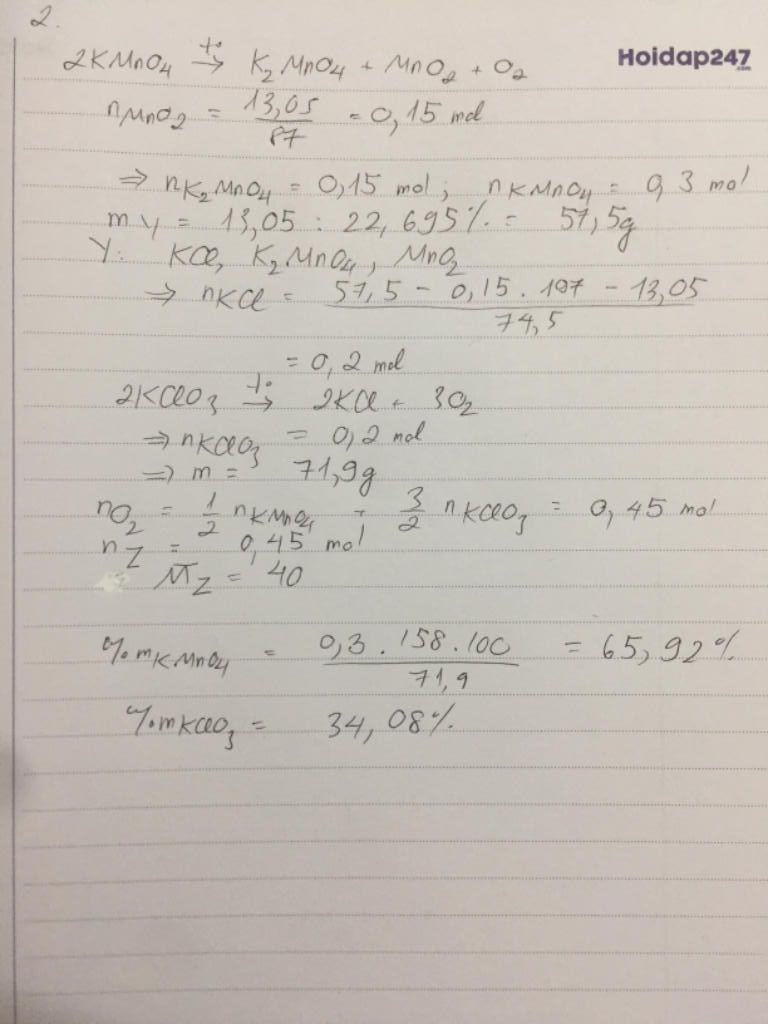 2.
Hoidap247
.com
2KMnO₄ →(t°) K₂MnO₄ + MnO₂ + O₂
nMnO₂ = 13,05 / 87 = 0,15 mol
⇒ nK₂MnO₄ = 0,15 mol ; nKMnO₄ = 0,3 mol
mY = 13,05 : 22,695% = 57,5g
Y: KCl, K₂MnO₄, MnO₂
⇒ nKCl = 57,5 - 0,15 . 197 - 13,05 / 74,5
= 0,2 mol
2KClO₃ →(t°) 2KCl + 3O₂
⇒ nKClO₃ = 0,2 mol
⇒ m = 71,9g
nO₂ = 1/2 nKMnO₄ + 3/2 nKClO₃ = 0,45 mol
nZ = 0,45 mol
M̅Z = 40
%mKMnO₄ = 0,3 . 158 . 100 / 71,9 = 65,92%
%mKClO₃ = 34,08%